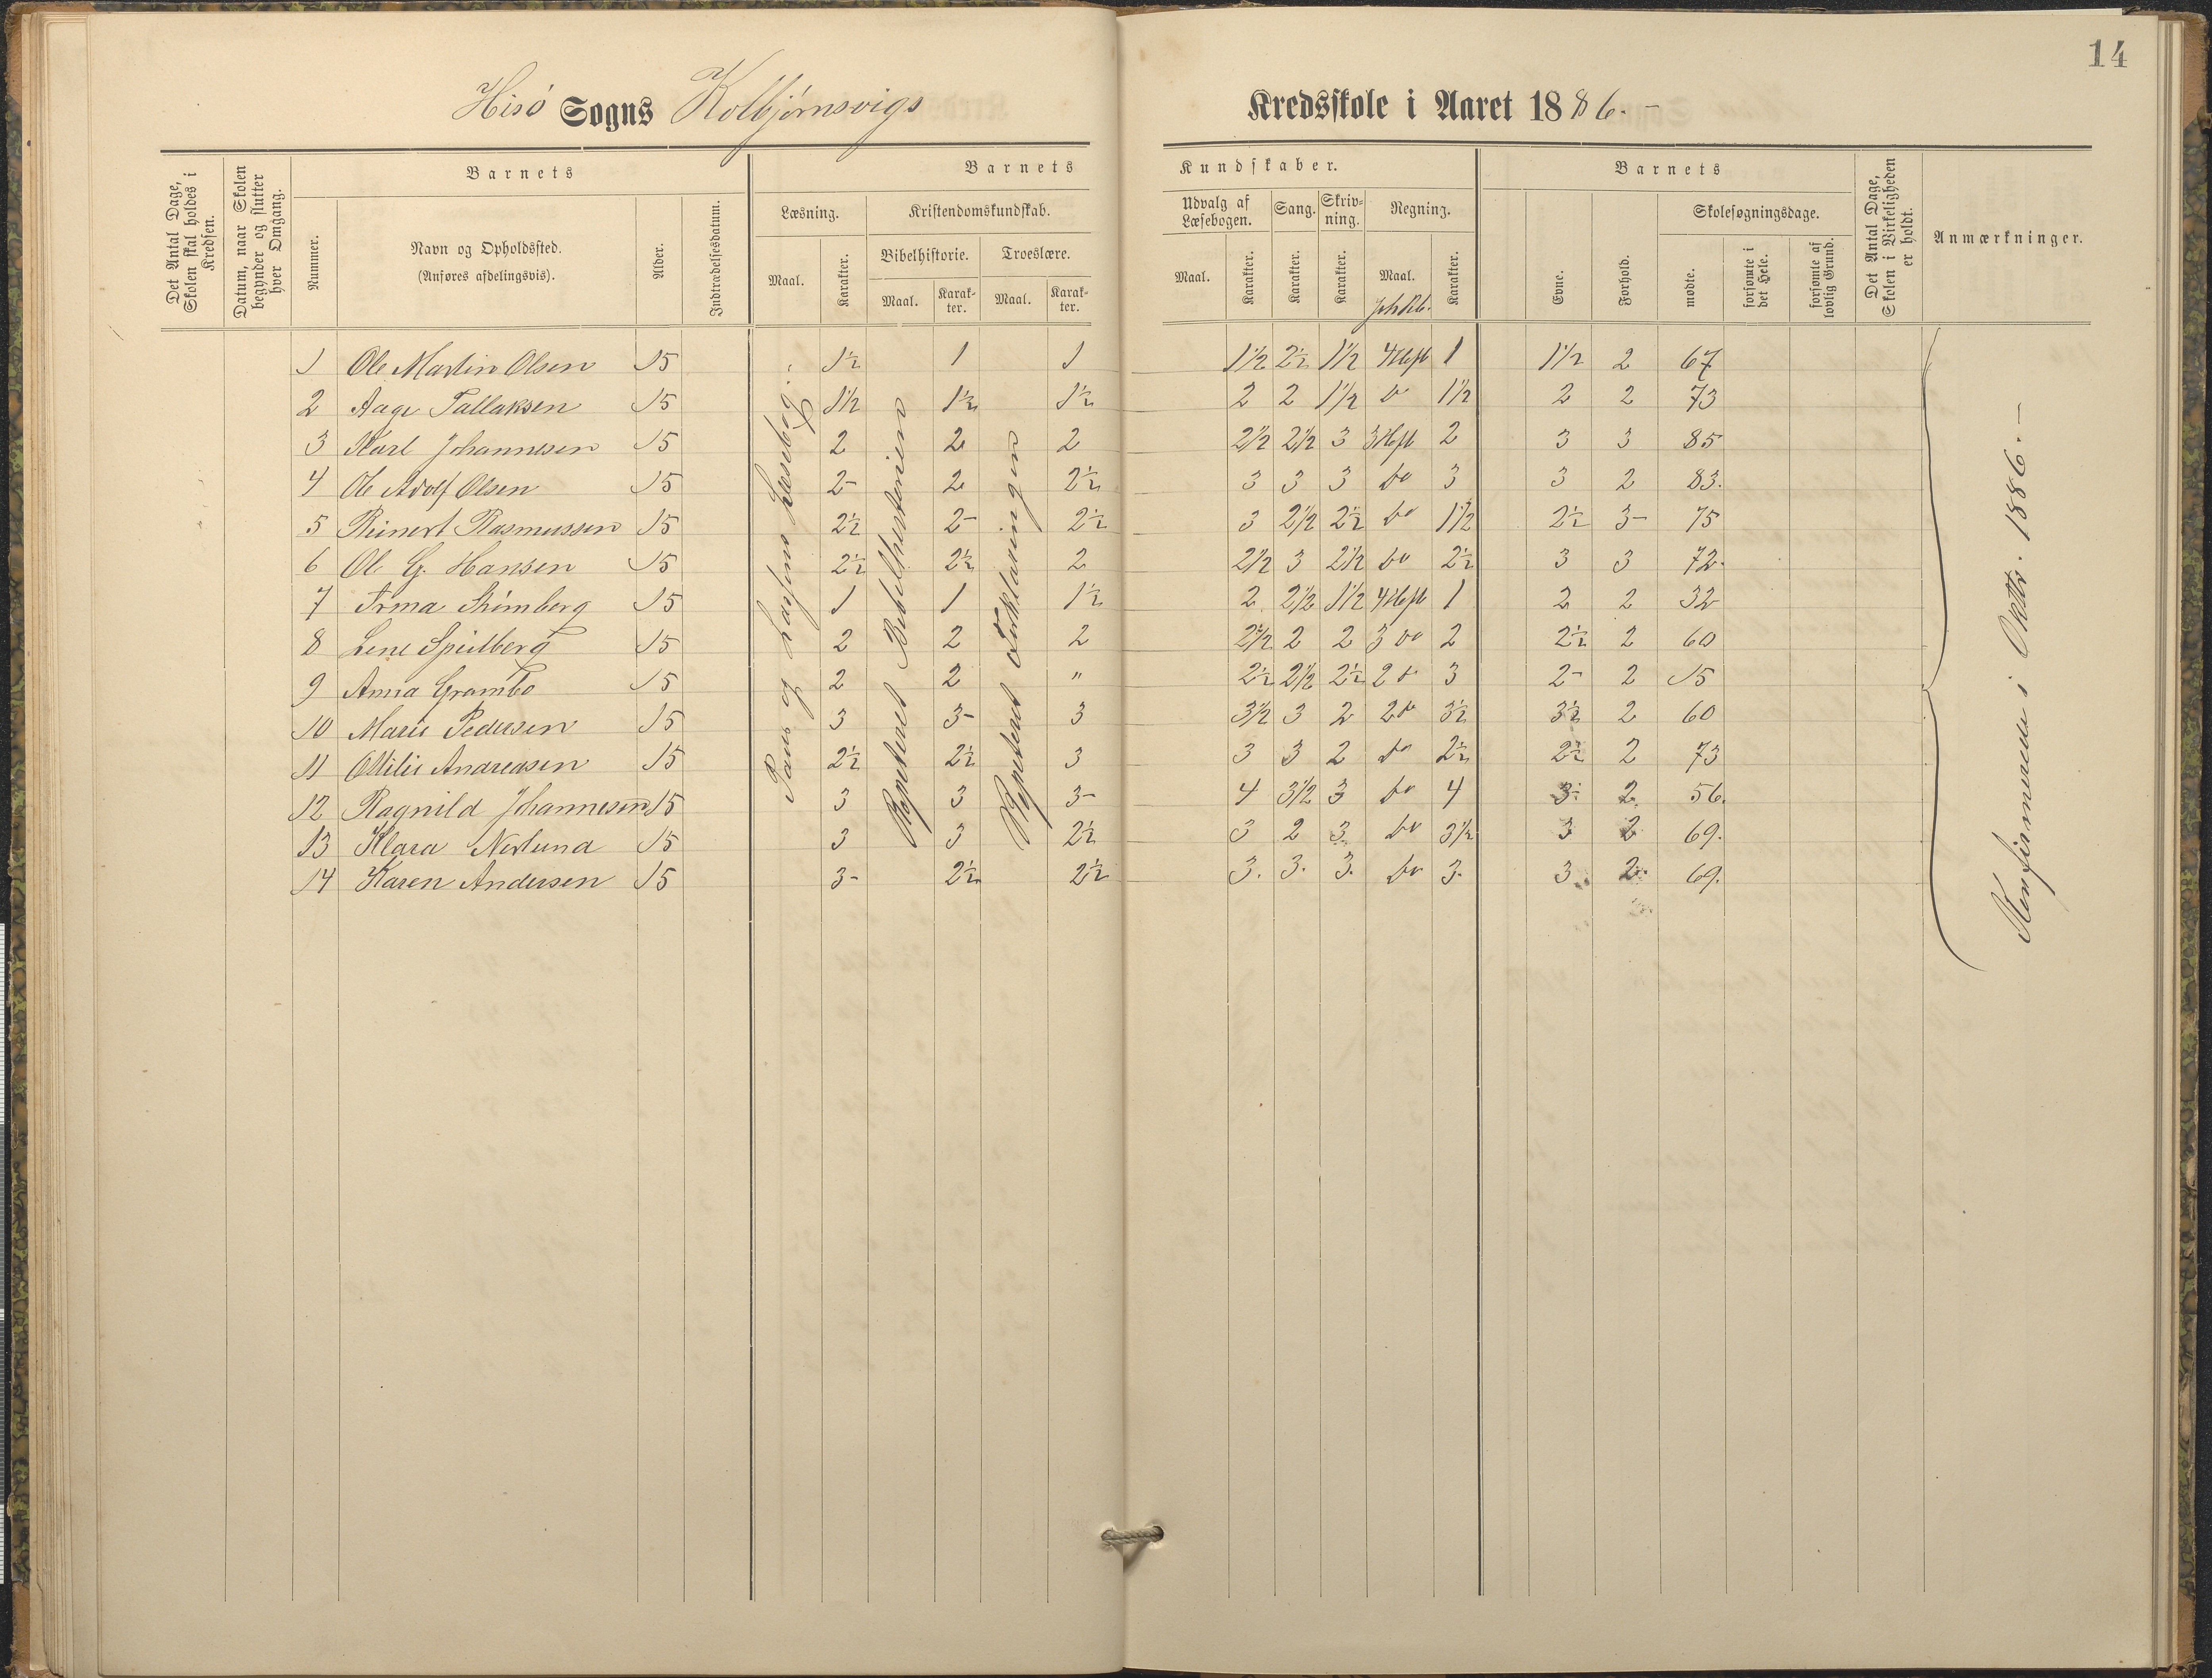 14
Hisö Sogns Kolbjörnsvigs Kredsskole i Aaret 1886.-
Det Antal Dage, Skolen skal holdes i Kredsen.
Datum, naar Skolen begynder og slutter hver Omgang.
Barnets
Nummer.
Navn og Opholdssted.
(Anføres afdelingsvis).
Alder.
Indtrædelsesdatum.
Barnets Kundskaber.
Læsning.
Maal.
Karakter.
Kristendomskundskab.
Bibelhistorie.
Maal.
Karakter.
Troeslære.
Maal.
Karakter.
Udvalg af Læsebogen.
Maal.
Karakter.
Sang.
Karakter.
Skrivning.
Karakter.
Regning.
Maal.
Karakter.
Barnets
Evne.
Forhold.
Skolesøgningsdage.
mødte.
forsømte i det Hele.
forsømte af lovlig Grund.
Det Antal Dage, Skolen i Virkeligheden er holdt.
Anmærkninger.
1 Ole Martin Olsen 15 1½ 1 1 1½ 2½ 1½ 4 Heft 1 1½ 2 67
2 Aage Tallaksen 15 1½ 1½ 1½ 2 2 1½ do 1½ 2 2 73
3 Karl Johannesen 15 2 2 2 2½ 2½ 3 3 Heft 2 3 3 85
4 Ole Adolf Olsen 15 2- 2 2½ 3 3 3 do 3 3 2 83.
5 Reinert Rasmussen 15 2½ 2- 2½ 3 2½ 2½ do 1½ 2½ 3- 75
6 Ole G. Hansen 15 2½ 2½ 2 2½ 3 2½ do 2½ 3 3 72.
7 15 1 1 1½ 2 2½ 1½ 4 Heft 1 2 2 32
8 Lene Spilberg 15 2 2 2 2½ 2 2 3 do 2 2½ 2 60
9 Anna Grambo 15 2 2 " 2½ 2½ 2½ 2 do 3 2- 2 15
10 Marie Pedersen 15 3 3- 3 3½ 3 2 2 do 3½ 3½ 2 60
11 Ottilie Andreasen 15 2½ 2½ 3 3 3 2 do 2½ 2½ 2 73
12 Ragnild Johannesen 15 3 3 3- 4 3½ 3 do 4 3- 2 56.
13 Klara Neslund 15 3 3 2½ 3 2 3 do 3½ 3 2 69.
14 Karen Andersen 15 3- 2½ 2½ 3. 3. 3. do 3. 3. 2. 69.
og Læsebog.
Repeteret Bibelhistorien
Repeteret Forklaringen
Konfirmerede i Oktbr. 1886.-